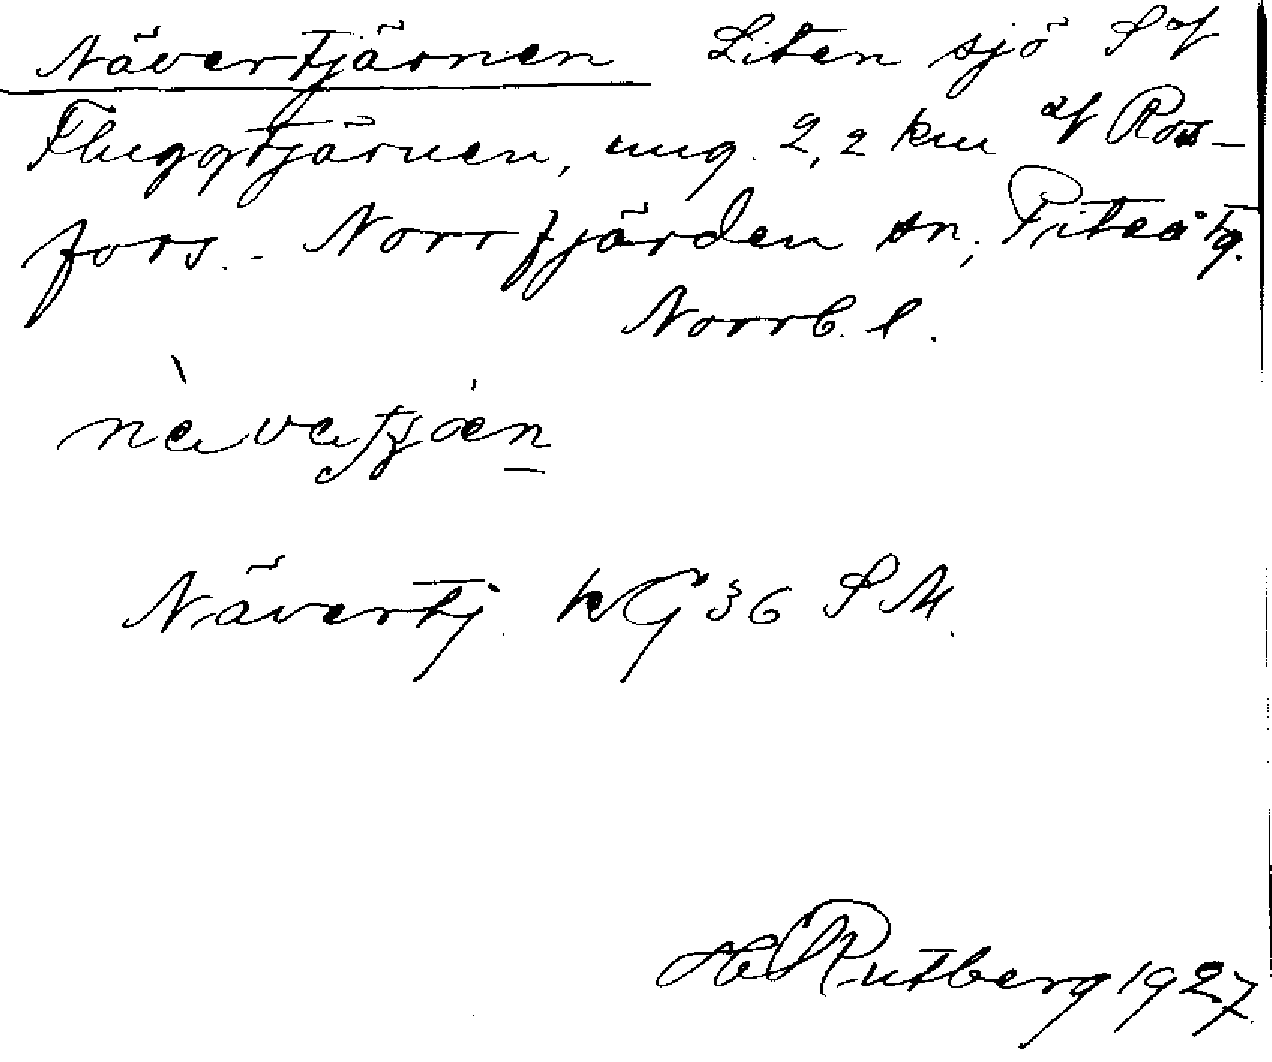 Nävertjärnen Liten sjö S of
Fluggtjärnen, ung. 2,2 km of Ros-
fors. - Norrfjärden sn, Piteå tg.
Norrb. l.
nèvatjæn
Nävertj. kG 36 S M.
H Rutberg 1927